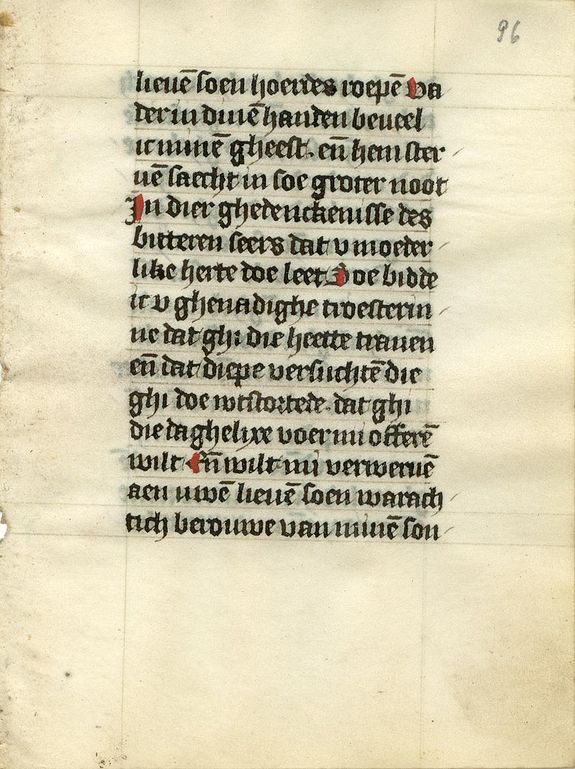 96
lieuē soen hoerdes roepē va
der in dinē handen beueel
ic minē gheest. eñ hem ster
uē saecht in soe groter noot
In dier ghedenckenisse des
bitteren seers dat v moeder
like herte doe leet Doe bidde
ic v ghenadighe troesterin
ne dat ghi die heette tranen
eñ dat diepe versuchtē die
ghi doe wtstortede. dat ghi
die daghelixe voer mi offerē
wilt Eñ wilt mi verweruē
aen uwē lieuē soen warach
tich berouwe van minē son